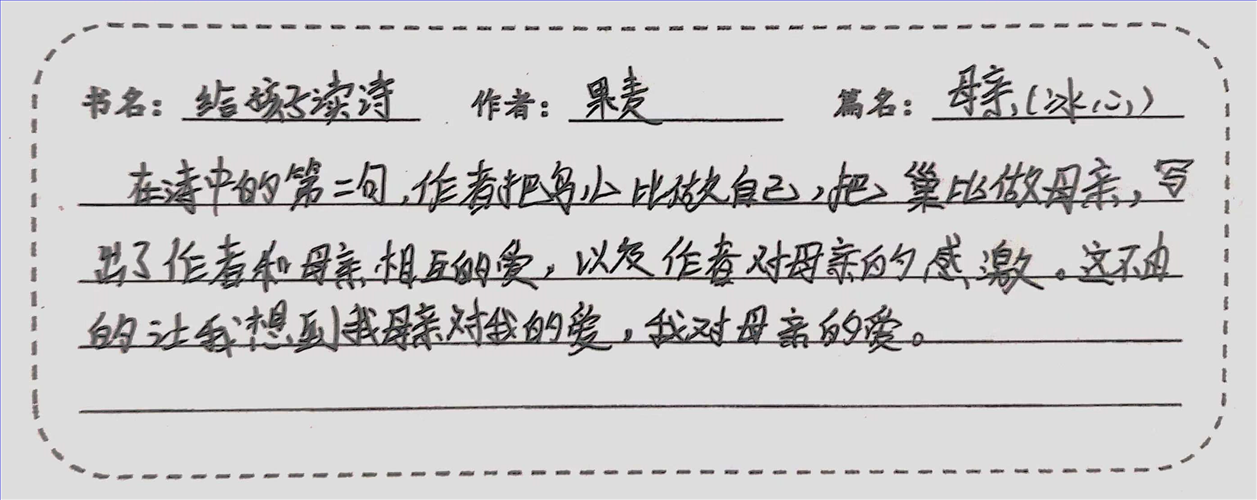 书名：给孩子读诗 作者：果麦 篇名：母亲（冰心）
在诗中的第二句，作者把鸟儿比做自己，把巢比做母亲，写
出了作者和母亲相互的爱，以及作者对母亲的感激。这不由
的让我想到我母亲对我的爱，我对母亲的爱。